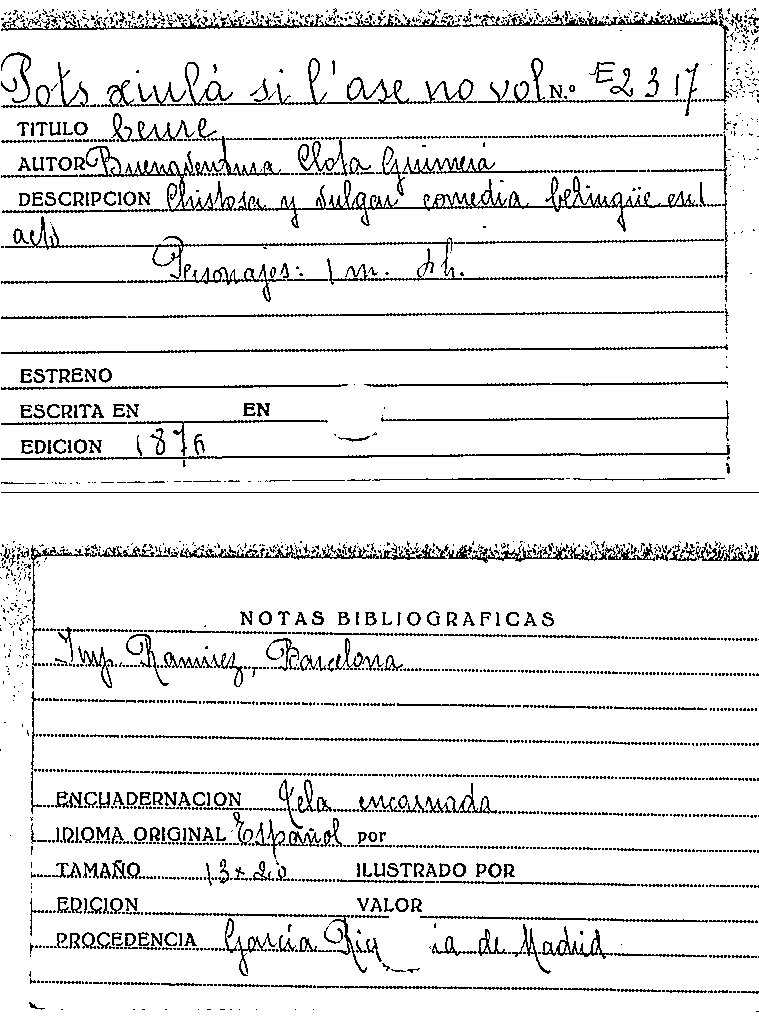 Pots xiulá si l'ase no vol N.º E2317
TITULO beure
AUTOR Buenaventura Clota Guimerá
DESCRIPCION Chistosa y vulgar comedia bilingüe en 1
acto
Personajes: 1 m. 4 h.
ESTRENO
ESCRITA EN EN
EDICION 1876
NOTAS BIBLIOGRAFICAS
Imp. Ramirez, Barcelona
ENCUADERNACION Tela encarnada
IDIOMA ORIGINAL Español por
TAMAÑO 13 x 20 ILUSTRADO POR
EDICION VALOR
PROCEDENCIA García Ric ia de Madrid